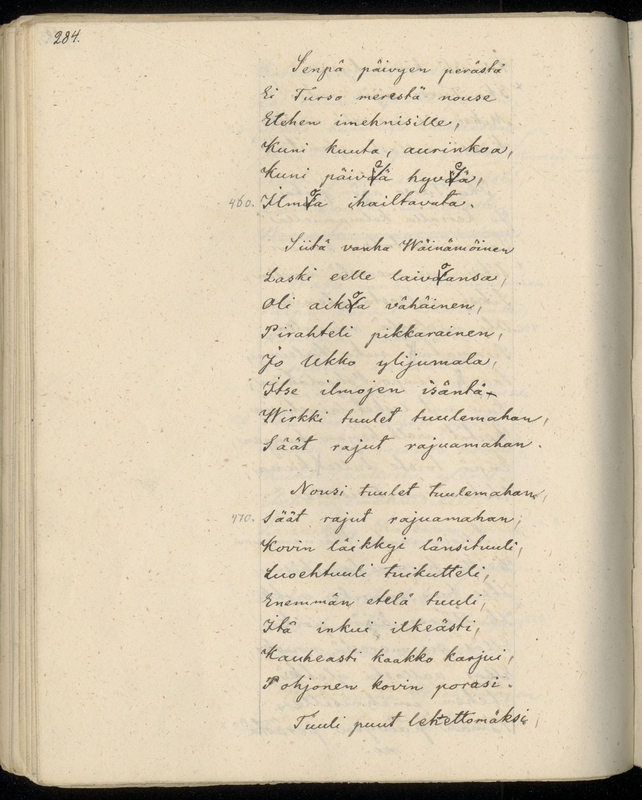 284.
Senpä päivyen perästä
Ei Turso merestä nouse
Etehen imehnisille,
Kuni kuuta, aurinkoa,
Kuni päiveä hyveä,
460. Ilmoa ihailtavata.
Siitä vanha Wäinämöinen
Laski eelle laivoansa,
Oli aikoa vähäinen,
Pirahteli pikkarainen,
Jo Ukko ylijumala,
Itse ilmojen isäntä
Wirkki tuulet tuulemahan,
Säät rajut rajuamahan.
Nousi tuulet tuulemahan,
470. Säät rajut rajuamahan;
Kovin läikkyi länsituuli,
Luoehtuuli tuikutteli,
Enemmän etelä tuuli,
Itä inkui ilkeästi,
Kauheasti kaakko karjui,
Pohjonen kovin porasi.
Tuuli puut lehettomäksi,